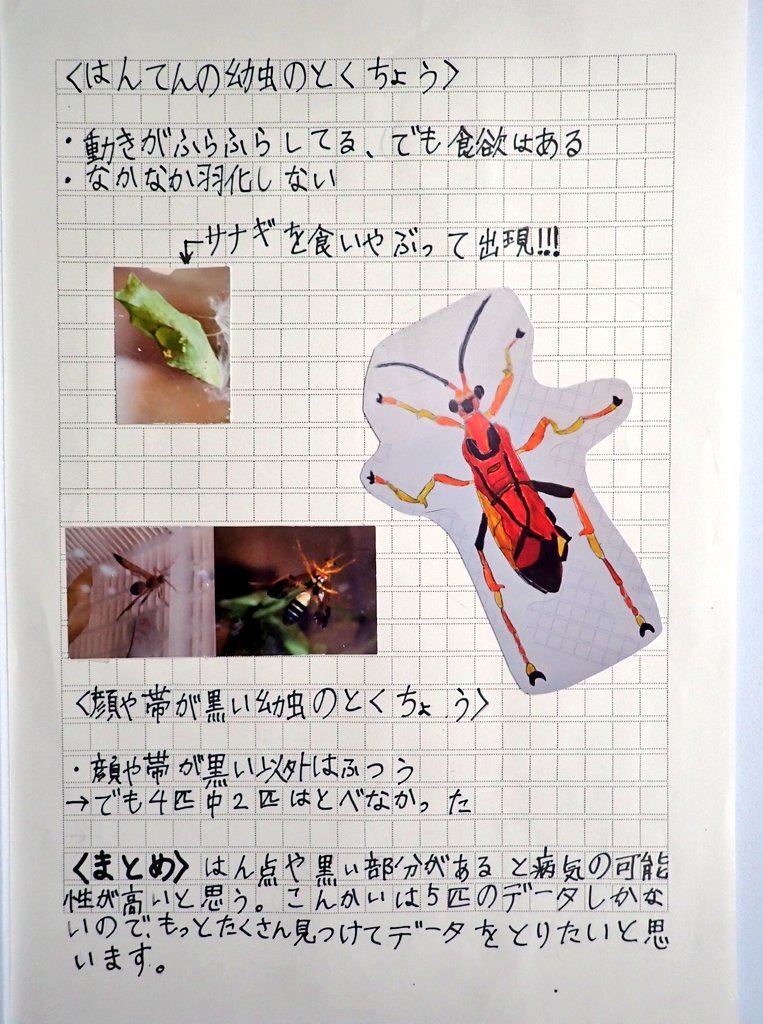 〈はんてんの幼虫のとくちょう〉
・動きがふらふらしてる、でも食欲はある
・なかなか羽化しない
サナギを食いやぶって出現!!!
〈顔や帯が黒い幼虫のとくちょう〉
・顔や帯が黒い以外はふつう
→でも4匹中2匹はとべなかった
〈まとめ〉はん点や黒い部分があると病気の可能
性が高いと思う。こんかいは5匹のデータしかな
いので、もっとたくさん見つけてデータをとりたいと思
います。